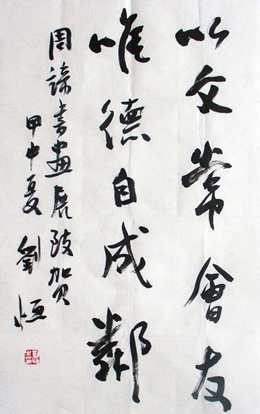 以文常會友
唯德自成鄰
周諦書畫展致贺
甲申夏 劉恒